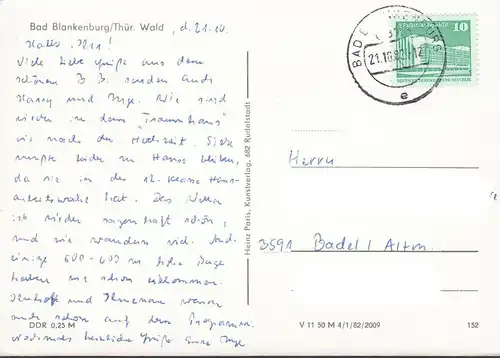 Bad Blankenburg/Thür. Wald, d. 21.10.
Hallo,
Viele liebe Grüße aus dem
schönen B. B. senden Euch
Harry und Inge. Wir sind
wieder in dem "Traumhaus"
wie nach der Hochzeit.
mußte leider zu Hause bleiben,
da sie in der 12. Klasse Haus-
hat. Das Wetter
ist wieder sagenhaft schön,
und wir wandern viel. Auch
einige 600 - m hohe Berge
haben wir schon erklommen.
und Ilmenau waren
auch schon auf dem Programm.
Nochmals herzliche Grüße Eure Inge
DDR 0,25 M
Heinz Paris, Kunstverlag, 682 Rudolstadt
BAD BLANKENBURG
21.10.
e
10
Herrn
3591 Badel / Altm.
V 11 50 M 4/1/82/2009
152